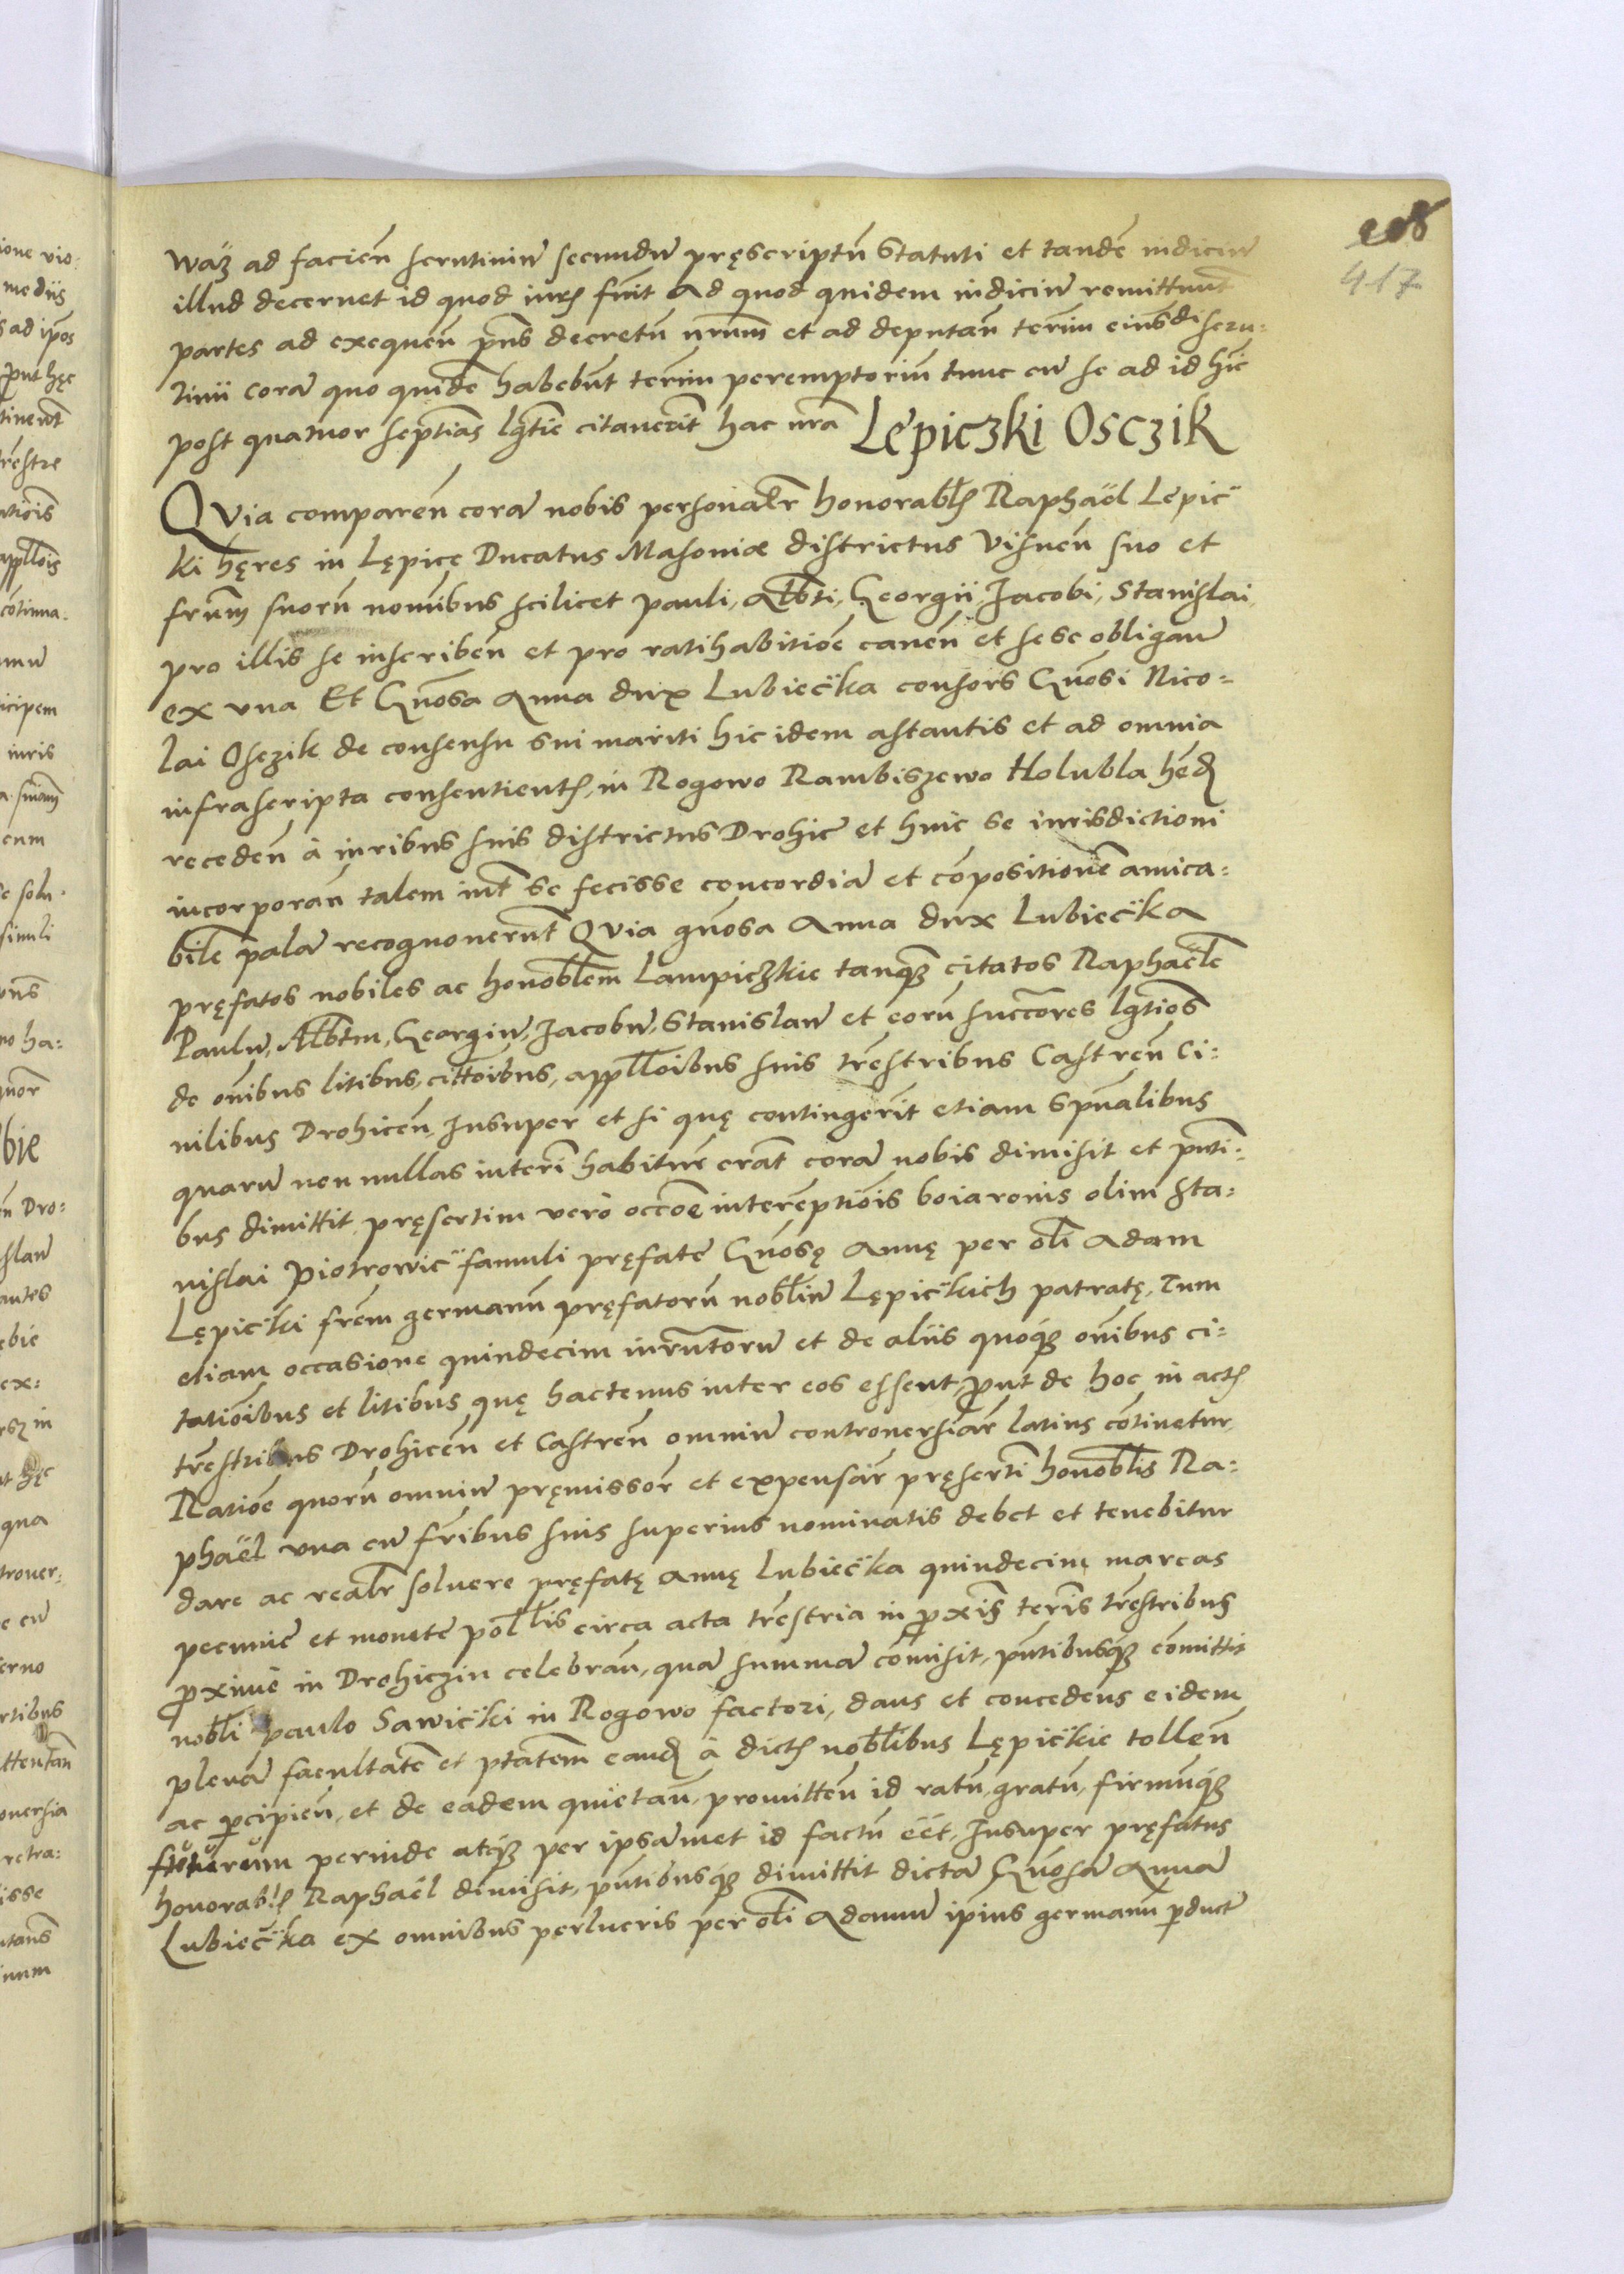 208
417
waz ad facień scrutiniū secundū pręscriptū Statuti et tandē iudiciū
illud decernet id quod iuris fuit Ad quod quidem iudiciū remittunt
partes ad exequeń pn̄s decretū nr̄um et ad deputań termin eiusdē scru-
tinii corā quo quidē habebūt termin peremptoriū tunc cū se ad id hic
post quatuor septias lgt̄ie citauerit hac nr̄a Lepiczki Osczik
Quia compareń corā nobis personalr̄ honorabilis Raphaël Lepic̈-
ki hęres in Lępice Ducatus Masoniæ districtus Visneń suo et
frūm suorū nomībus scilicet Pauli, Albti, Georgii, Jacobi, Stanislai,
pro illis se inscribeń et pro ratihabitiōe caueń et sese obligań
ex vna Et Gn̄osa Anna dux Lubiec̈ka consors Gn̄osi Nico-
lai Osczik de consensu sui mariti hic idem astantis et ad omnia
infrascripta consentientis, in Rogowo Rambiszewo Holubla hēd
recedeń à iuribus suis districtus Drohic et huic se iurisdictioni
incorporań talem int̄ se fecisse concordiā et cōpositionē amica-
bilē palā recognouerūt Quia gn̄osa Anna dux Lubiec̈ka
pręfatos nobiles ac honoblem Lampiczkie tanquā citatos Raphaëlē
Paulū, Albtm, Georgiū, Jacobū, Stanislaū et eorū succōres lgt̄ios
de oīnibus litibus, cittōibus, appllōibus suis tr̄estribus Castreń Ci-
uilibus Drohiceń, Insuper et si quę contingerīt etiam spūalibus
quarū non nullas interī habiturę erāt corā nobis dimisit et pn̄ti-
bus dimittit, pręsertim verò occōe interēptiōis boiaronis olim Sta-
nislai Piotrowic̈ famuli pręfatę Gn̄osę Annę per olī Adam
Lępic̈ki frēm germanū pręfatorū nobliū Lępic̈kich patratę, Tum
etiam occasione quindecim iurūtorū et de aliis quoque oīnibus ci-
tatiōibus et litibus quę hactenus inter eos essent, prout de hoc in actis
tr̄estribus Drohiceń et Castreń omniū controuersiar̄ latius cōtinetur,
Ratiōe quorū omniū pręmissor̄ et expensar̄ pręsertī honoblis Ra-
phaël vna cū fr̄ibus suis superius nominatis debet et tenebitur
dare ac realr̄ soluere pręfatę Annę Lubiec̈ka quindecim marcas
pecunię et monetę pollis circa acta tr̄estria in proxis̄ ter̄is tr̄estribus
proximè in Drohiczin celebrań, quā summā cōmisit, pn̄tibusque cōmittit
nobli Paulo Sawic̈ki in Rogowo factori, dans et concedens eidem
plenā facultatē et ptatem eand à dictis noblibus Lępic̈kie tolleń
ac percipień, et de eadem quietań, promitteń id ratū, gratū, firmūque
futurum perinde atque per ipsāmet id factū eēt, Insuper pręfatus
honorabilis Raphaël dimisit, pn̄tibusque dimittit dictā Gn̄osā Annā
Lubiec̈ka ex omnibus perlucris per olī Adamū ipius germanū productę